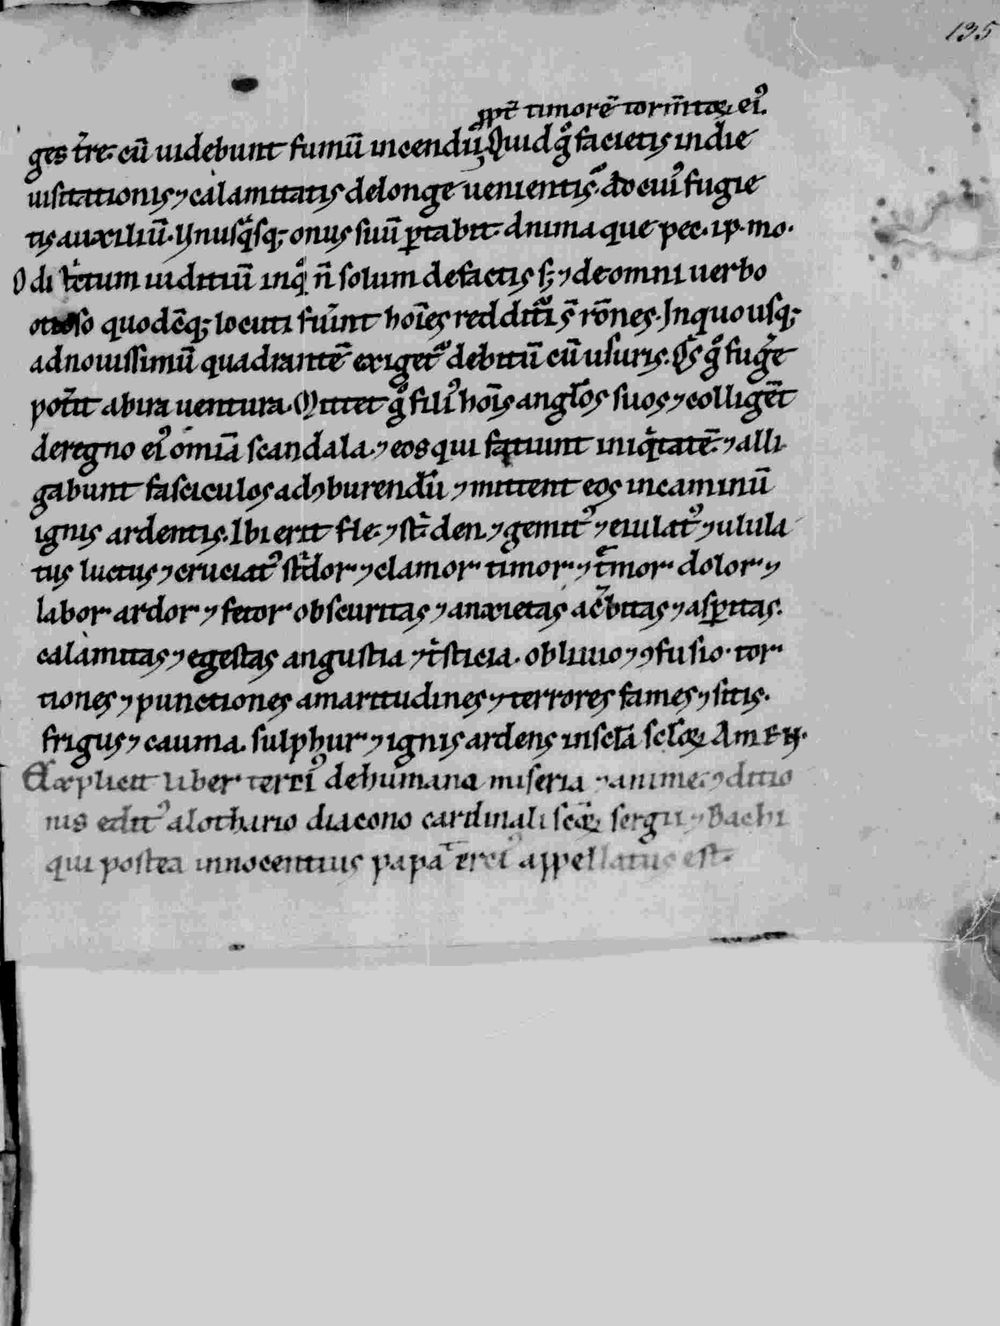 135
ꝓpt̄ timorē torm̄toꝝ eiꝰ.
ges tr̄e. cū uidebunt fumū incendiı̄. Quid gͦ facietis in die
uisitationis ⁊ calamitatis de longe uenientis. ad cuiꝰ fugie
tis auxiliū. Vnusqͥsq; onus suū ꝑtabit. Anima que pec. ip. mo.
O districtum iudiciū inqͦ n̄ solum de factis sꝫ ⁊ de omni uerbo
otioso quodcūq; locuti fuīnt hoīes reddituͬi sͭ rōnes. In quo usq;
ad nouissimū quadrantē exigetᷣ debitū cū usuris. Qͥs gͦ fuge
pot̄it a uıra uentura. Mittet gͦ filiꝰ hoīs anglōs suos ⁊ colligēt
de regno eiꝰ omīa scandala. ⁊ eos qui faciunt iniqͥtatē. ⁊ alli
gabunt fasciculos ad ꝯburendū ⁊ mittent eos in caminū
ignis ardentis. Ibi erit fle. ⁊ str̄. den. ⁊ gemitꝰ ⁊ eiulatꝰ ⁊ ulula
tus luctus ⁊ cruciatꝰ stͥdor ⁊ clamor timor ⁊ tͬmor dolor ⁊
labor ardor ⁊ fetor obscuritas ⁊ anxietas ac̄bitas ⁊ asꝑitas.
calamitas ⁊ egestas angustia ⁊ tͥsticia. obliuio ⁊ ꝯfusio. tor
tiones ⁊ punctiones amaritudines ⁊ terrores fames ⁊ sitis.
frigus ⁊ cauma. sulphur ⁊ ignis ardens in sclā scloꝝ Amen.
Explicit liber tercıꝰ de humana miseria ⁊ anime. ꝯditio
nis editꝰ a lothario diacono cardinali scōꝝ sergii ⁊ Bachi
qui postea innocentius papa t̄ciꝰ appellatus est.